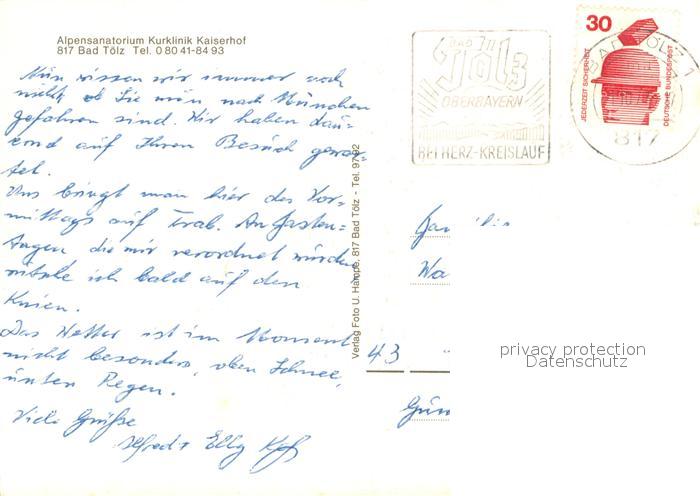 Alpensanatorium Kurklinik Kaiserhof
817 Bad Tölz Tel. 0 80 41-84 93
Nun wissen wir immer noch
nicht ob Sie nun nach München
gefahren sind. Wir haben dau=
ernd auf Ihren Besuch gewar=
tet.
Uns bringt man hier des Vor=
mittags auf Trab. An Fasten=
tagen die mir verordnet wurden
ich bald auf den
Knien.
Das Wetter ist im Moment
nicht besonders, oben Schnee,
unten Regen.
Viele Grüße
Alfred + Elly
Verlag Foto U. Hampe, 817 Bad Tölz - Tel. 97 92
BAD
Tölz
OBERBAYERN
BEI HERZ-KREISLAUF
30
JEDERZEIT SICHERHEIT
DEUTSCHE BUNDESPOST
BAD TÖLZ
817
Fam
Wa
43
Gün
privacy protection
Datenschutz